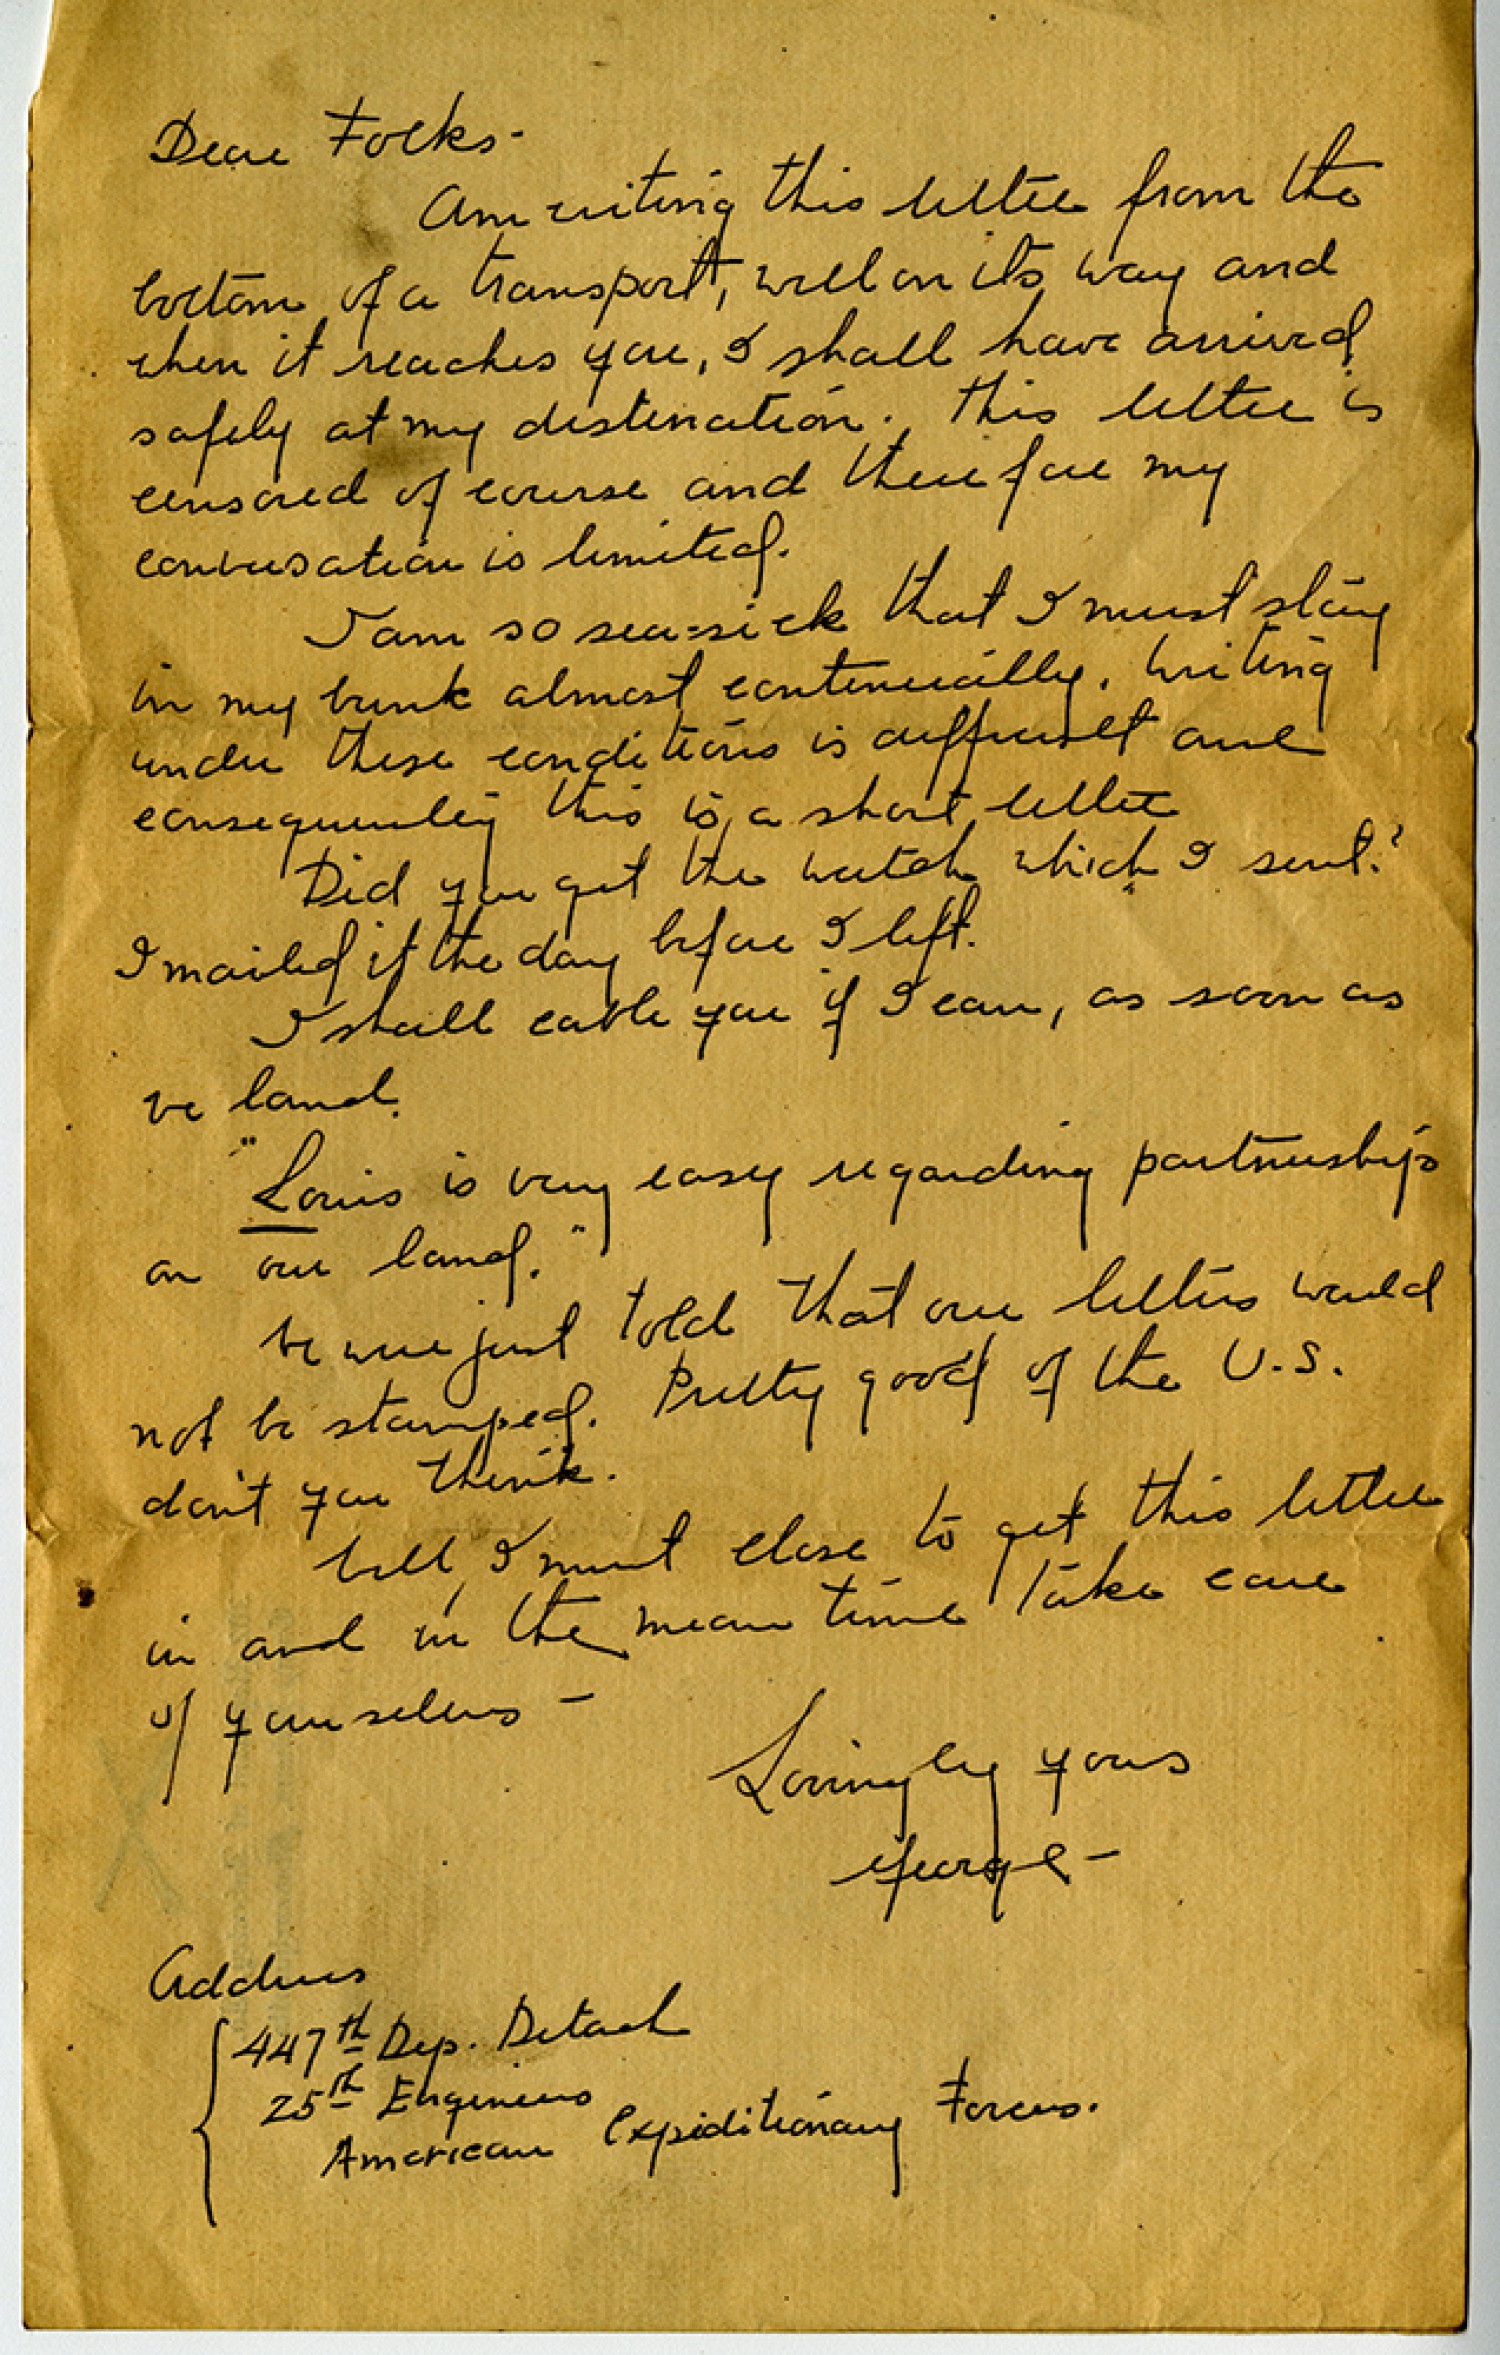 Dear Folks-
Am writing this letter from the
bottom of a transport, well on its way and
when it reaches you, I shall have arrived
safely at my destination. This letter is
censored of course and therefore my
conversation is limited.
I am so sea-sick that I must stay
in my bunk almost continually. Writing
under these conditions is difficult and
consequently this is a short letter
Did you get the watch which I sent?
I mailed it the day before I left.
I shall cable you if I can, as soon as
we land.
"Louis is very easy regarding partnerships
on our land."
We were just told that our letters would
not be stamped. Pretty good of the U.S.
don't you think.
Well, I must close to get this letter
in and in the mean time take care
of yourselves -
Lovingly yours
George -
Address
447th Dep. Detach
25th Engineers
American Expeditionary Forces.